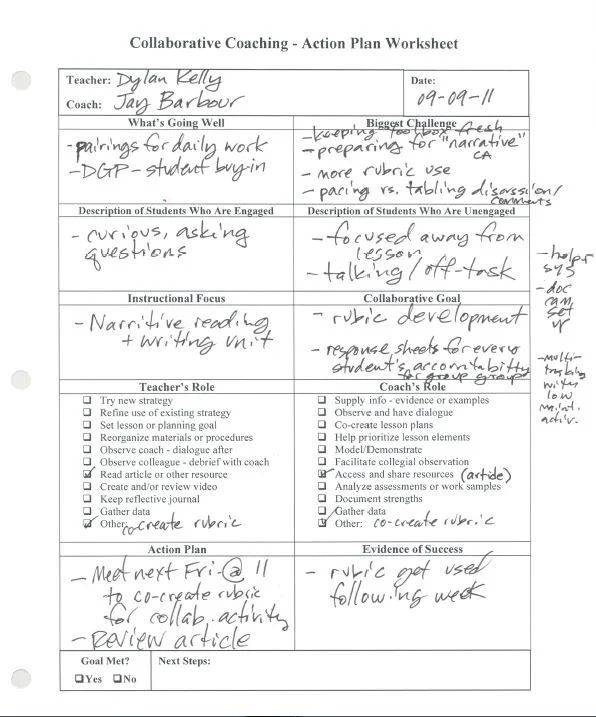 Collaborative Coaching - Action Plan Worksheet
Teacher: Dylan Kelly
Coach: Jay Barbour
Date:
09-09-11
What's Going Well
- pairings for daily work
- DGP - student buy-in
Biggest Challenge
- keeping toolbox fresh
- preparing for "narrative"
CA
- more rubric use
- pacing rs. tabling discussion/
comments
Description of Students Who Are Engaged
- curious, asking
questions
Description of Students Who Are Unengaged
- focused away from
lesson
- talking / off-task
Instructional Focus
- Narritive reading
+ writing unit
Collaborative Goal
- rubic development
- response sheets for every
student's accountability
for group
- helper
sys
- doc
cam
set
up
- multi-
tasking
low
maint.
activ.
Teacher's Role
❏ Try new strategy
❏ Refine use of existing strategy
❏ Set lesson or planning goal
❏ Reorganize materials or procedures
❏ Observe coach - dialogue after
❏ Observe colleague - debrief with coach
☑ Read article or other resource
❏ Create and/or review video
❏ Keep reflective journal
❏ Gather data
☑ Other: co-create rubric
Coach's Role
❏ Supply info - evidence or examples
❏ Observe and have dialogue
❏ Co-create lesson plans
❏ Help prioritize lesson elements
❏ Model/Demonstrate
❏ Facilitate collegial observation
☑ Access and share resources (article)
❏ Analyze assessments or work samples
❏ Document strengths
❏ Gather data
☑ Other: co-create rubric
Action Plan
- Meet next Fri - @ 11
to co-create rubric
for collab. activity
- Review article
Evidence of Success
- rubic get used
following week
Goal Met?
❏ Yes ❏ No
Next Steps: